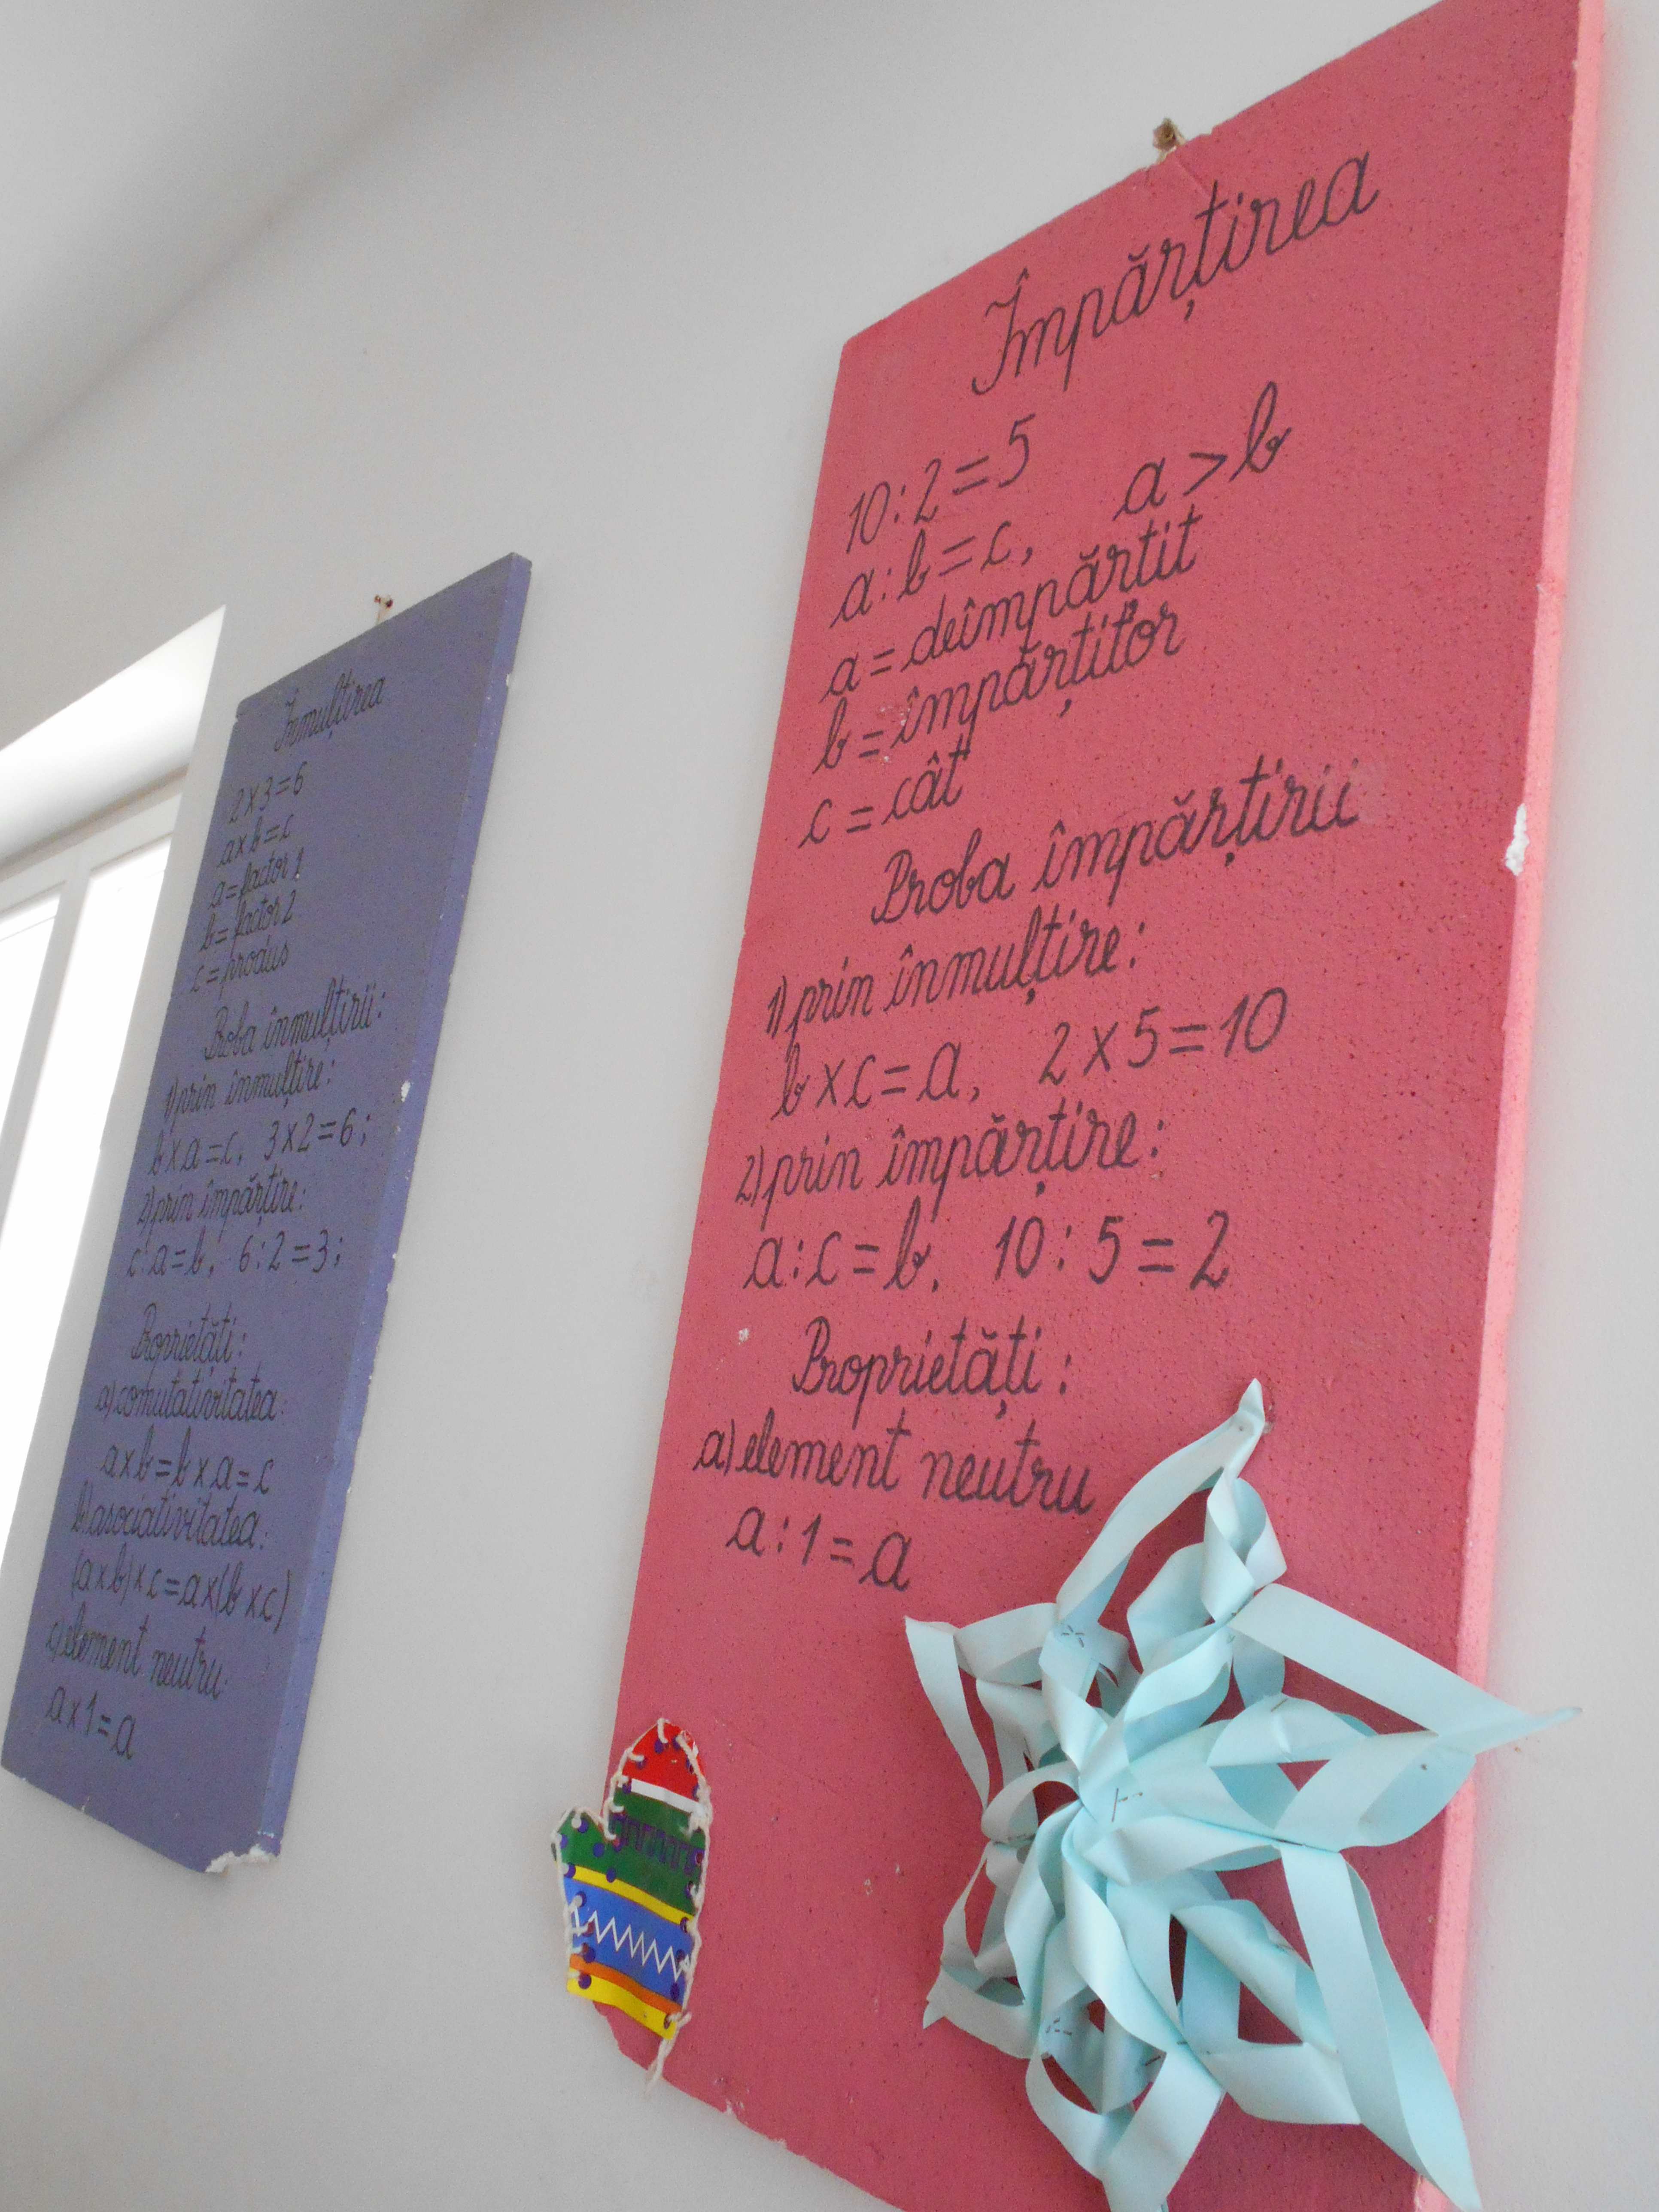 Înmulțirea
2x3=6
axb=c
a=factor 1
b=factor 2
c=produs
Proba înmulțirii:
1) prin înmulțire:
bxa=c, 3x2=6;
2) prin împărțire:
c:a=b, 6:2=3;
Proprietăți:
a) comutativitatea:
axb=bxa=c
b) asociativitatea:
(axb)xc=ax(bxc)
c) element neutru:
ax1=a
Împărțirea
10:2=5
a:b=c, a>b
a=deîmpărțit
b=împărțitor
c=cât
Proba împărțirii
1) prin înmulțire:
bxc=a, 2x5=10
2) prin împărțire:
a:c=b, 10:5=2
Proprietăți:
a) element neutru
a:1=a